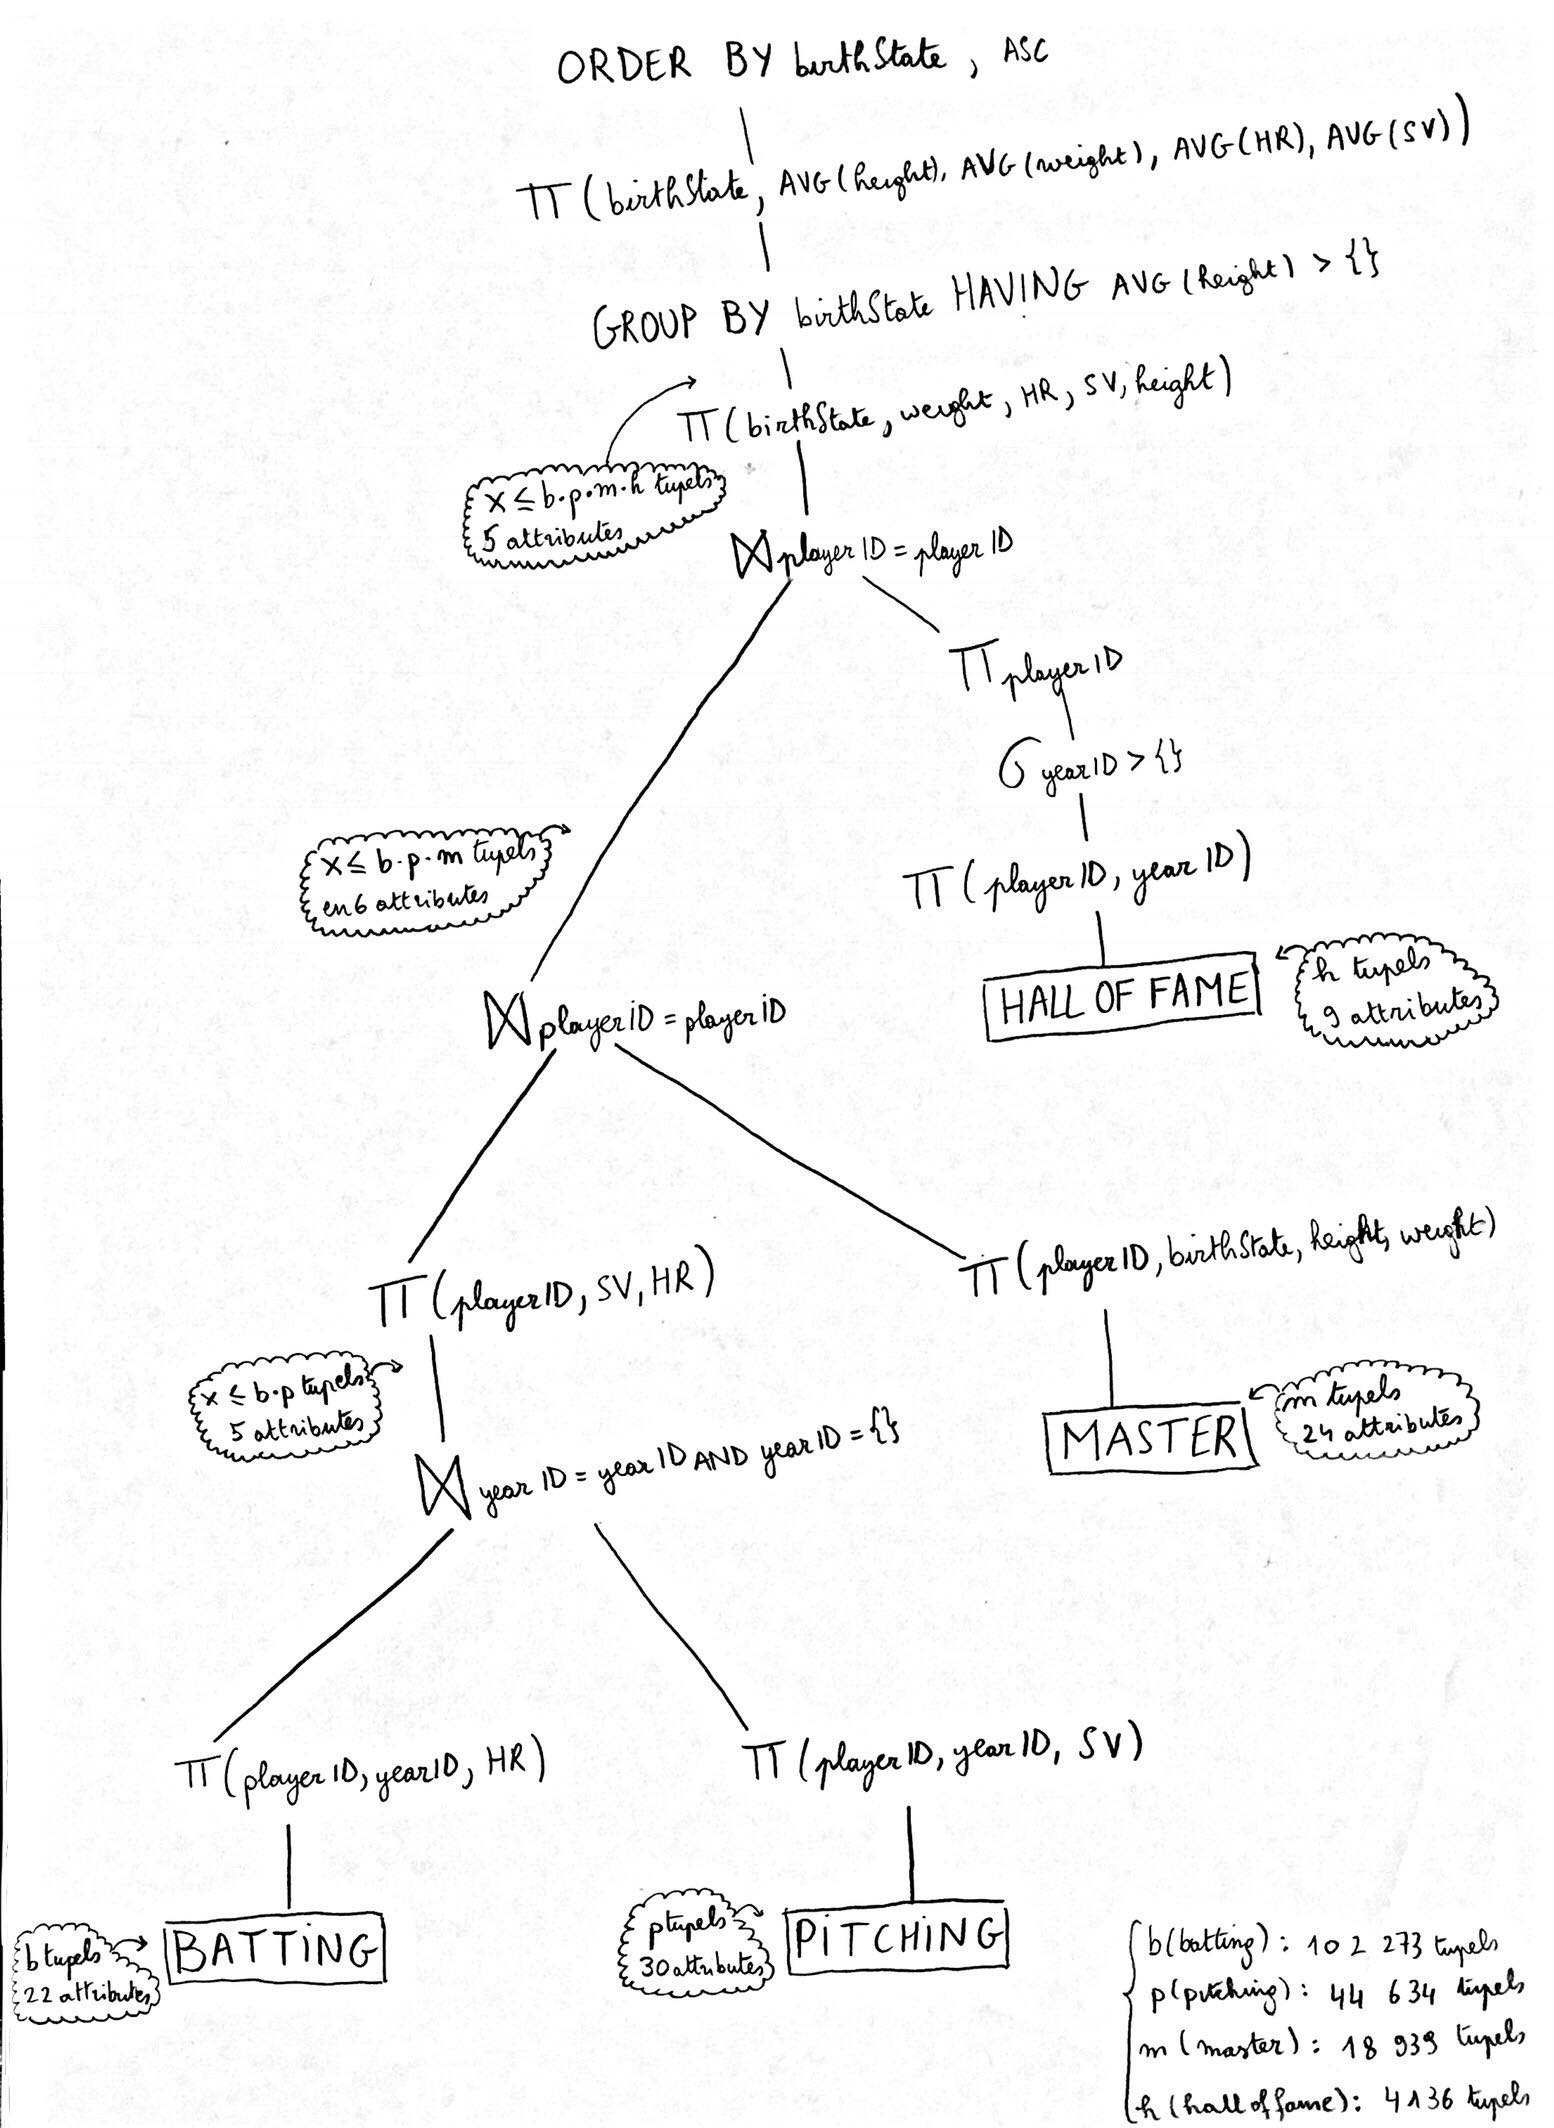 ORDER BY birthState, ASC
π(birthState, AVG(height), AVG(weight), AVG(HR), AVG(SV))
GROUP BY birthState HAVING AVG(height) > {}
π(birthState, weight, HR, SV, height)
x ≤ b.p.m.h tupels
5 attributes
⋈ playerID = playerID
π playerID
σ yearID > {}
x ≤ b.p.m tupels
en 6 attributes
π(playerID, yearID)
HALL OF FAME
h tupels
9 attributes
⋈ playerID = playerID
π(playerID, SV, HR)
π(playerID, birthState, height, weight)
x ≤ b.p tupels
5 attributes
MASTER
m tupels
24 attributes
⋈ yearID = yearID AND yearID = {}
π(playerID, yearID, HR)
π(playerID, yearID, SV)
b tupels
22 attributes
BATTING
p tupels
30 attributes
PITCHING
b(batting): 102 273 tupels
p(pitching): 44 634 tupels
m(master): 18 939 tupels
h(hall of fame): 4136 tupels